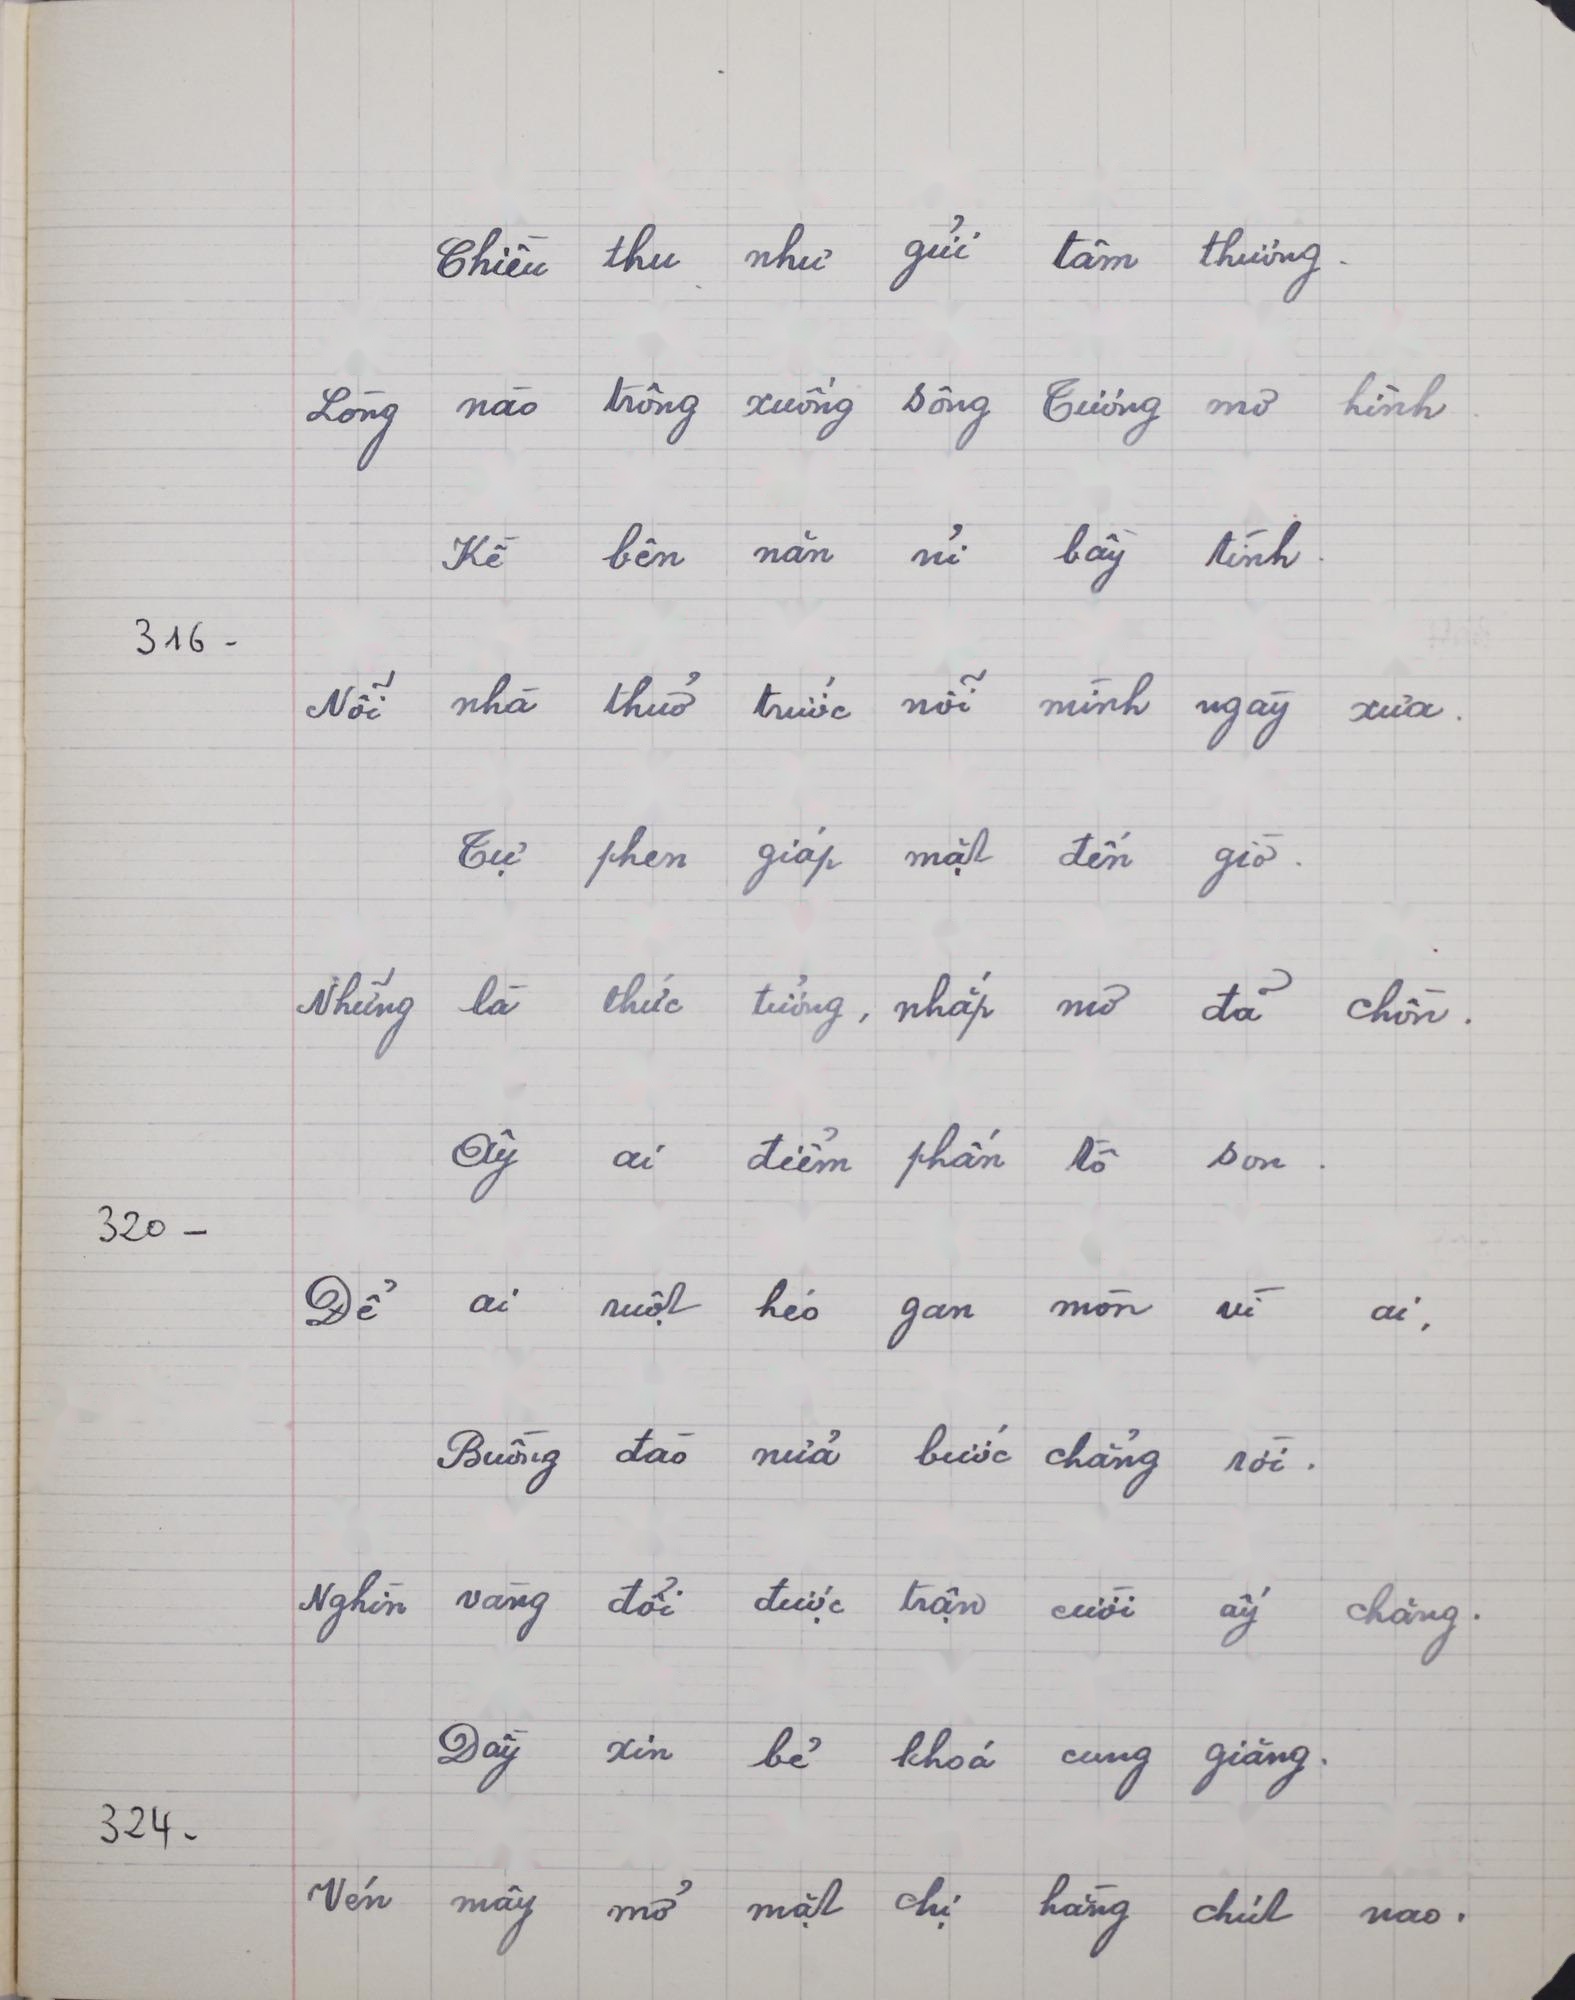 Chiều thu như gửi tâm thương.
Lòng nào trông xuống sông Tương mơ hình.
Kề bên năn nỉ bầy tình.
316-
Nỗi nhà thuở trước nỗi mình ngày xưa.
Tự phen giáp mặt đến giờ.
Những là thức tưởng, nhắp mơ đã chồn.
Ấy ai điểm phấn tô son.
320-
Để ai ruột héo gan mòn vì ai,
Buồng đào nửa bước chẳng rời.
Nghìn vàng đổi được trận cười ấy chăng.
Dầy xin bẻ khoá cung giăng.
324-
Vén mây mở mặt chị hằng chút nao.